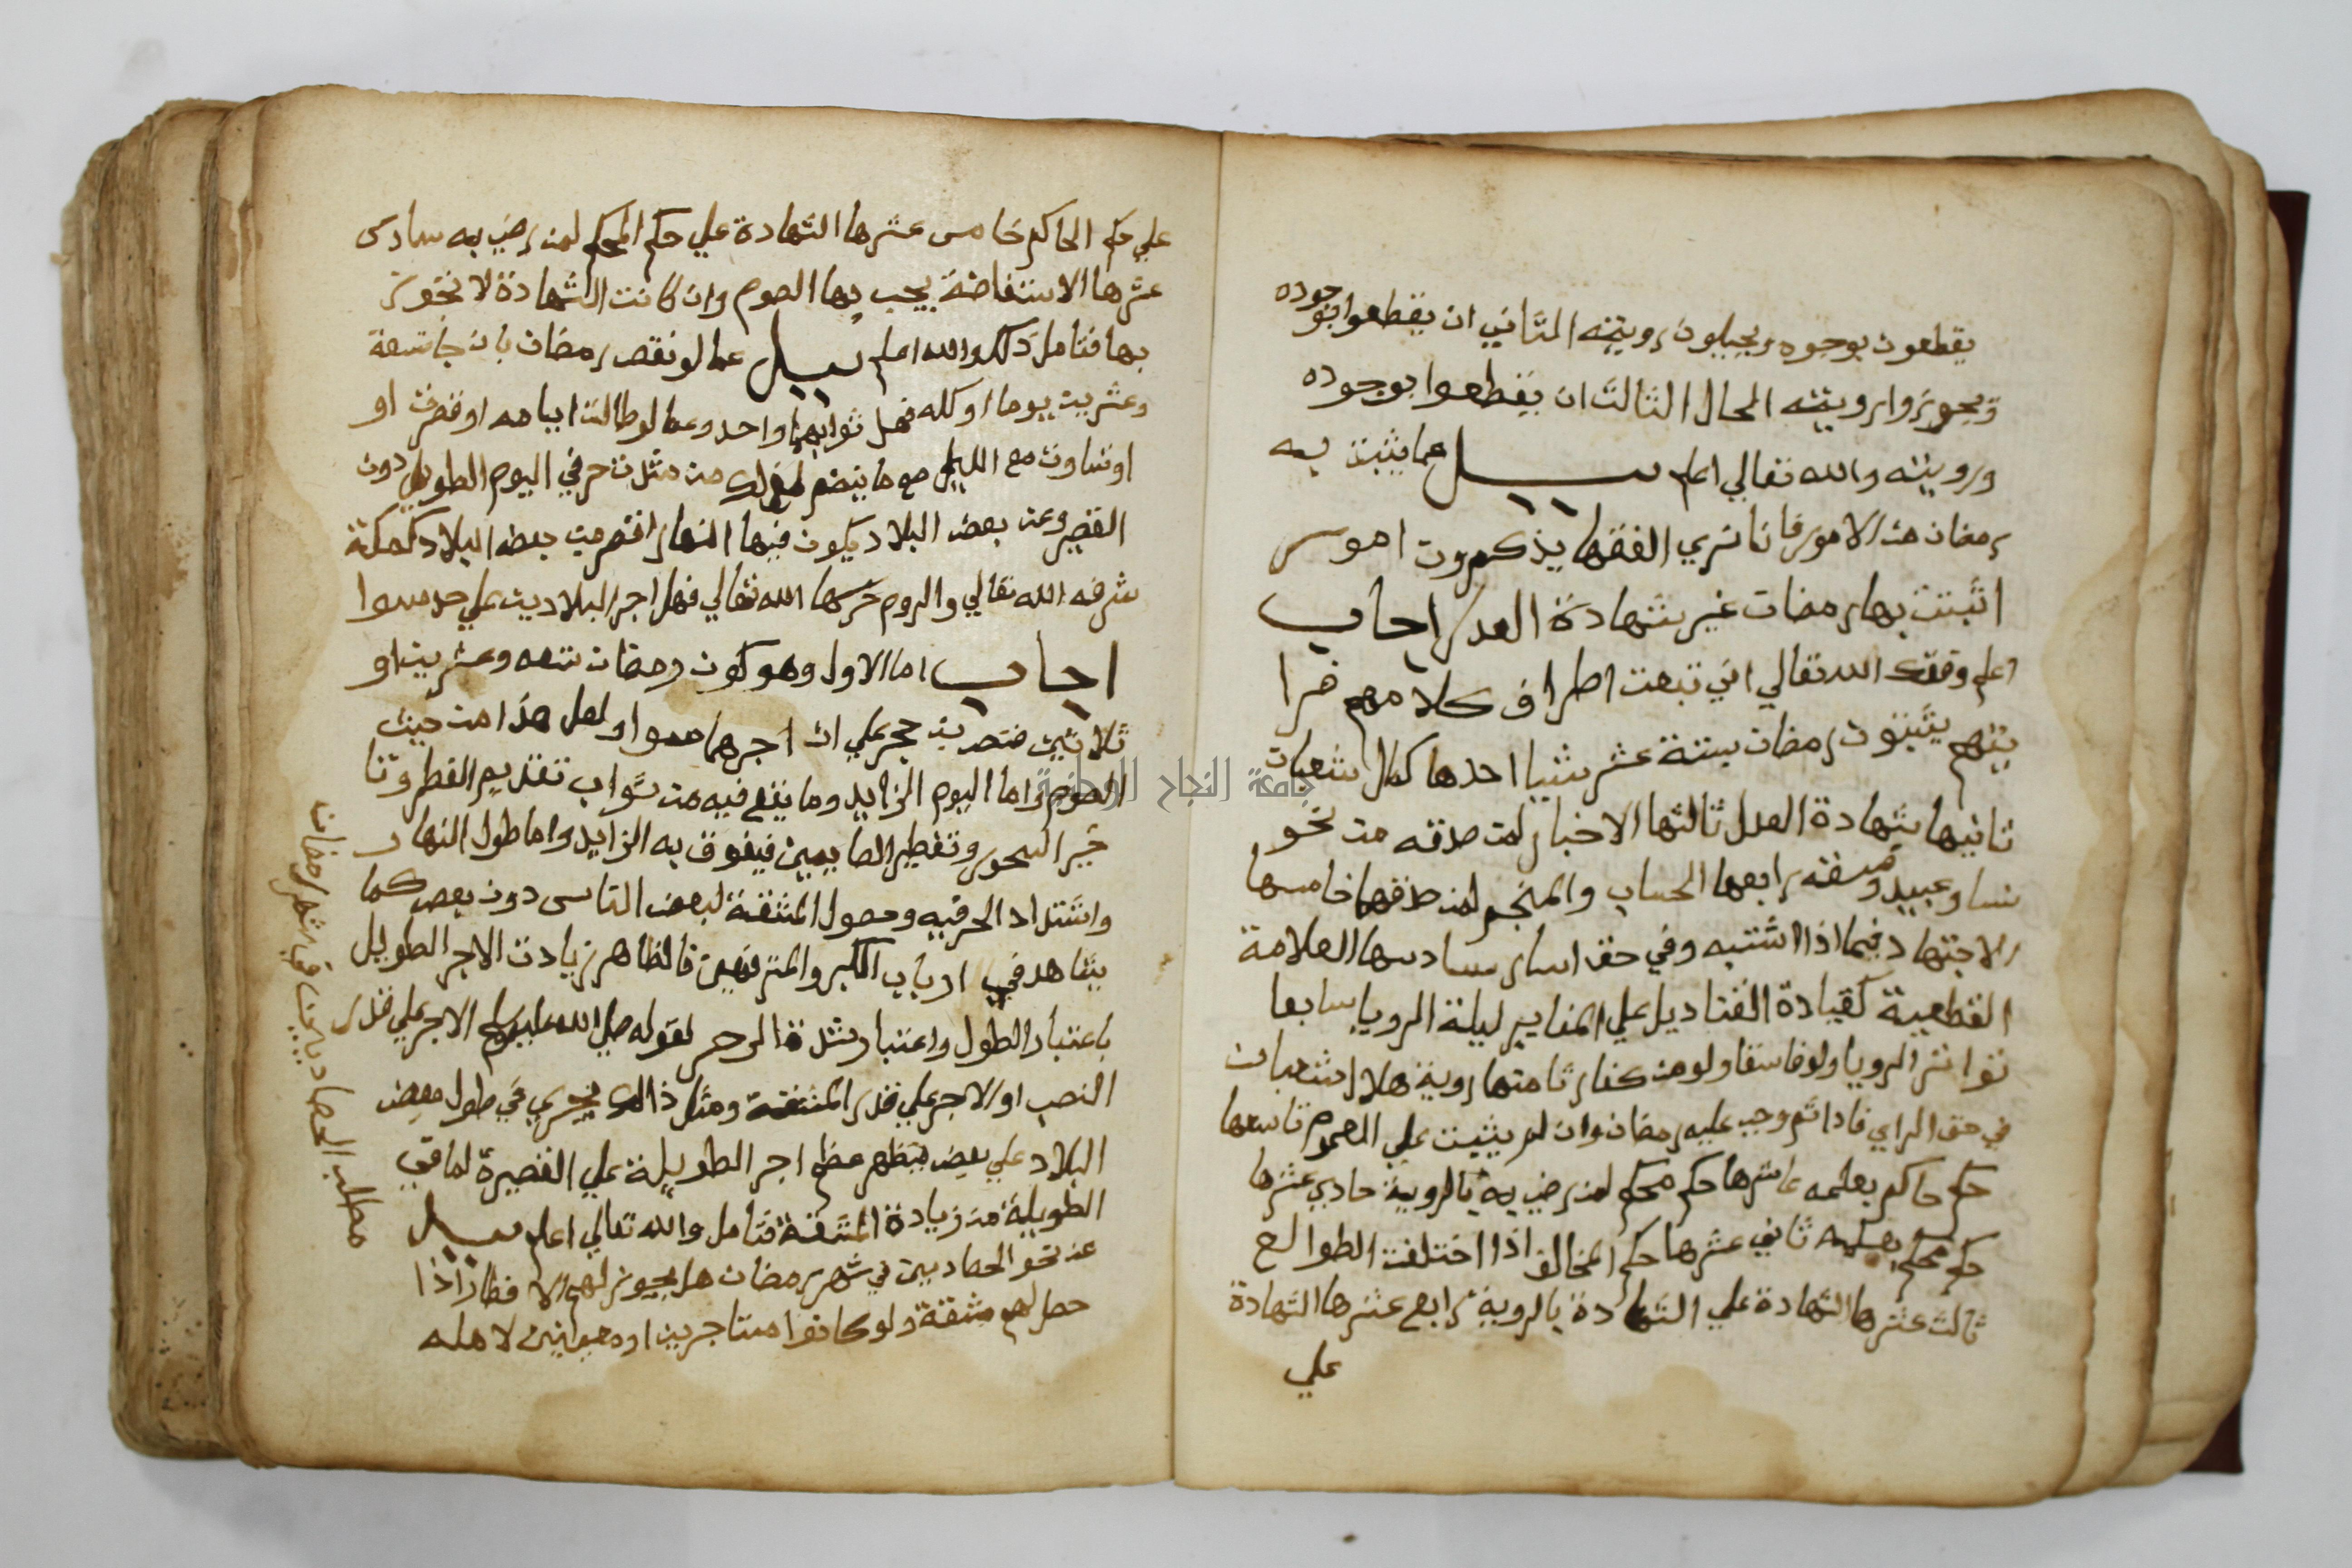 يقطعون بوجوده ويحيلون رويته الثاني ان يقطعوا بوجوده
ويجوزوا رويته الحال الثالث ان يقطعوا بوجوده
ورويته والله تعالي اعلم سيل عما يثبت به
رمضان من الامور فانا نري الفقها يذكرون امور
اثبتت بها رمضان غير شهادة العدل اجاب
اعلم وفقك الله تعالي اني تتبعت اطراف كلامهم فرا
يتهم يثبتون رمضان بستة عشر شيا احدها كمال شعبان
ثانيها شهادة العدل ثالثها الاخبار لمن صدقه من نحو
نسا وعبيد وفسقه رابعها الحساب والمنجم لمن صدقها خامسها
الاجتهاد فيما اذا اشتبه وفي حق اسار سادسها العلامة
القطعية كقيادة القناديل علي المناير ليلة الرويا سابعا
تواتر الرويا ولو فاسقا ولو من كفار ثامنها روية هلال شعبان
في حق الراي فاذا تم وجب عليه رمضان وان لم يثبت علي العموم تاسعها
حكم حاكم بعلمه عاشرها حكم محكم لمن رضي به بالروية حادي عشرها
حكم محكم بعلمه ثاني عشرها حكم المخالف اذا اختلفت الطوالع
ثالث عشرها الشهادة علي الشهادة بالروية رابع عشرها الشهادة
علي
علي حكم الحاكم خامس عشرها الشهادة علي حكم المحكم لمن رضي به سادس
عشرها الاستفاضة يجب بها الصوم وان كانت الشهادة لا تجوز
بها فتامل ذلك والله اعلم سيل عما لو نقص رمضان بان جا تسعة
وعشرين يوما او كله فهل ثوابهما واحد وعما لو طالت ايامه او قصرت او
تساوت مع الليل مع ما ينضم لذلك من مثل حر في اليوم الطويل دون
القصير وعن بعض البلاد يكون فيها النهار اقصر من بعض البلاد كمكة
شرفه الله تعالي والروم حرسها الله تعالي فهل اجر البلادين علي حد سوا
اجاب اما الاول وهو كون رمضان تسعه وعشرين او
ثلاثين فتصريح حجر علي ان اجرهما سوا ولعل هذا من حيث
الصوم واما اليوم الزايد وما يقع فيه من ثواب تقديم الفطر وتا
خير السحور وتفطير الصايمين فيفوق به الزايد واما طول النهار
واشتداد الحر فيه وحصول المشقة لبعض الناس دون بعض كما
يشاهد في ارباب الكبر والمترفهين فالظاهر زيادت الاجر الطويل
باعتبار الطول واعتبار شدة الحر لقوله صلي الله عليه وسلم الاجر علي قدر
النصب او الاجر علي قدر المشقة ومثل ذالك يجري في طول بعض
البلاد علي بعض فيظهر عظم اجر الطويلة علي القصيرة لما في
الطويلة من زيادة المشقة فتامل والله تعالي اعلم سيل
عن نحو الحصادين في شهر رمضان هل يجوز لهم الافطار اذا
حصل لهم مشقة ولو كانوا مستاجرين او معاونين لاهله
مطلب الحصاديين في شهر رمضان
جامعة النجاح الوطنية